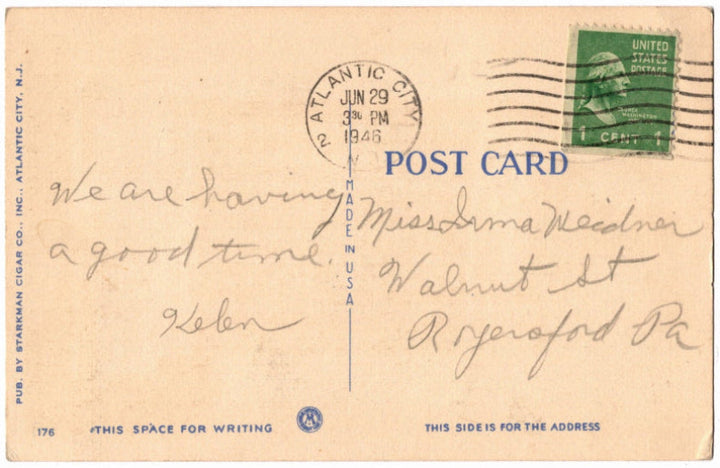 UNITED
STATES
POSTAGE
WASHINGTON
1 CENT 1
ATLANTIC CITY
2
JUN 29
3 30 PM
1946
N
POST CARD
MADE IN USA
We are having
a good time.
Helen
Miss Irma Weidner
Walnut St
Royersford Pa
PUB. BY STARKMAN CIGAR CO., INC., ATLANTIC CITY, N.J.
176
THIS SPACE FOR WRITING
THIS SIDE IS FOR THE ADDRESS